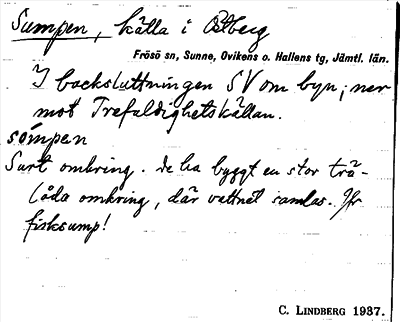 Sumpen, källa i Östberg
Frösö sn, Sunne, Ovikens o. Hallens tg, Jämtl. län.
I backsluttningen SV om byn, ner
mot Trefaldighetskällan.
sómpen
Surt omkring. de ha byggt en stor trä-
låda omkring, där vattnet samlas. Jfr
fisksump!
C. LINDBERG 1937.